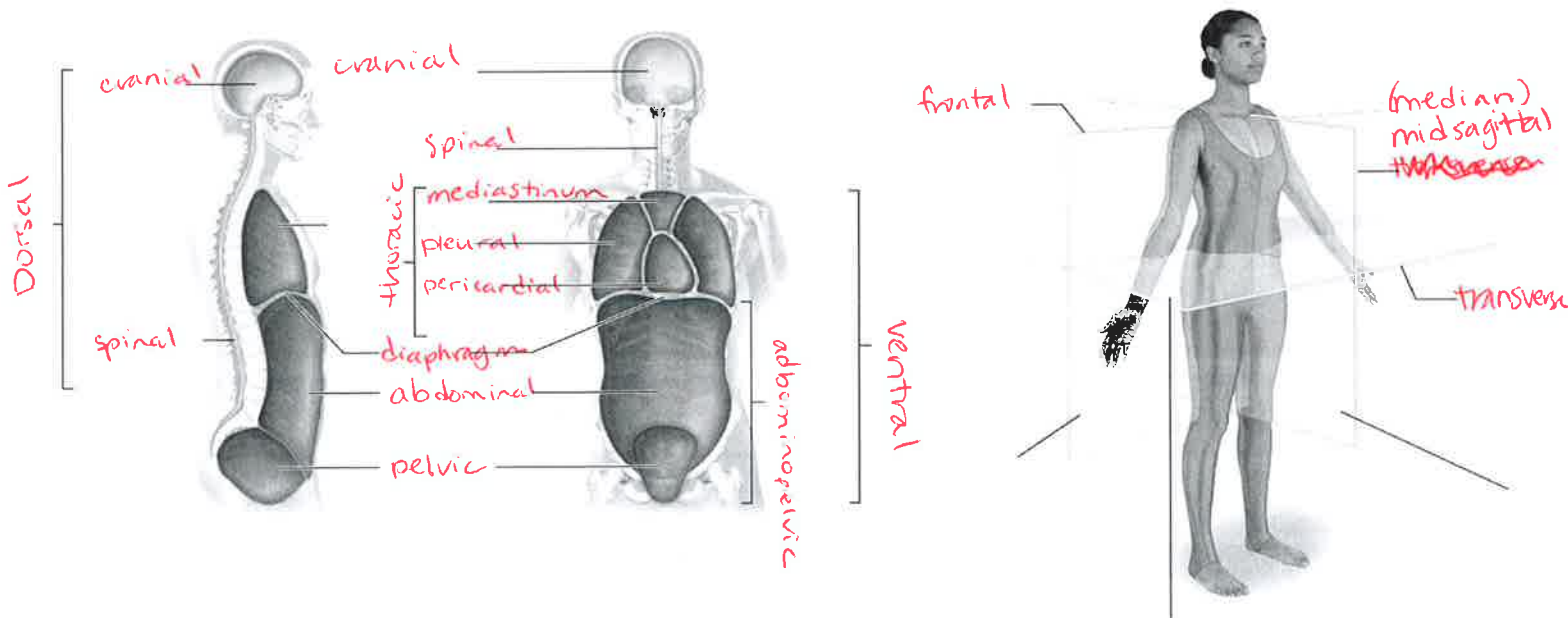 cranial
cranial
Dorsal
spinal
spinal
thoracic
mediastinum
pleural
pericardial
diaphragm
abdominal
pelvic
ventral
frontal
(median)
midsagittal
transverse